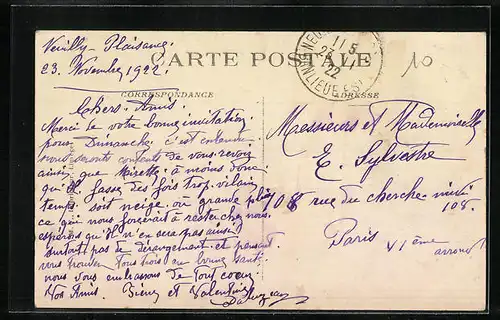 Neuilly-Plaisance.
23. Novembre, 1922.
CARTE POSTALE
11 5
22
BANLIEUE EST
10
CORRESPONDANCE
ADRESSE
Chers Amis.
Merci de votre bonne invitation
pour Dimanche, c'est entendu
nous serons contents de vous revoir
ainsi que Mirette à moins donc
qu'il fasse des fois trop vilain
temps soit neige ou grande pluie
ce qui nous forcerait à rester chez nous.
esperons qu'il n'en sera pas ainsi
surtout pas de dérangement et pensant
vous trouver tous trois en bonne santé
nous vous embrassons de tout coeur
Vos Amis. et Valentine
Messieurs et Mademoiselle
E. Sylvestre
108 rue du cherche-midi
108.
Paris VIème
arrond